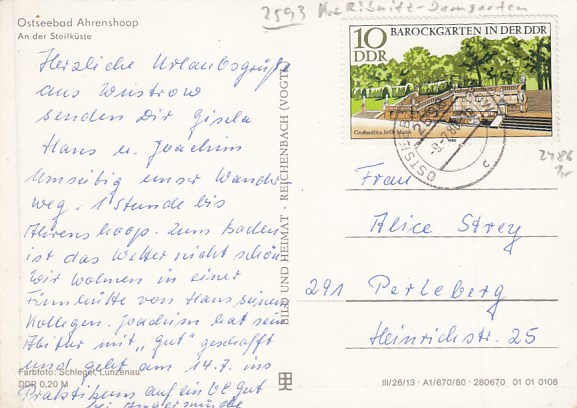 2593 Kr. Ribnitz-Damgarten
Ostseebad Ahrenshoop
An der Steilküste
10
DDR
BAROCKGÄRTEN IN DER DDR
Großsedlitz bei Pirna
1980
OSTSEEBAD
-9.-7.80
c
2486
Herzliche Urlaubsgrüße
aus Wustrow
senden Dir Gisela
Hans u. Joachim
Umseitig unser Wander
weg. 1 Stunde bis
Ahrenshoop. Zum Baden
ist das Wetter nicht schön
Wir wohnen in einer
Finnhütte von Hans seinem
Kollegen. Joachim hat sein
Abitur mit „gut" geschafft
und geht am 14.7. ins
Praktikum auf ein VE gut
bei Angermünde
BILD UND HEIMAT · REICHENBACH (VOGTL
Frau
Alice Strey
291 Perleberg
Heinrichstr. 25
Farbfoto: Schlegel, Lunzenau
DDR 0,20 M
III/26/13 · A1/670/80 · 280670 01 01 0106